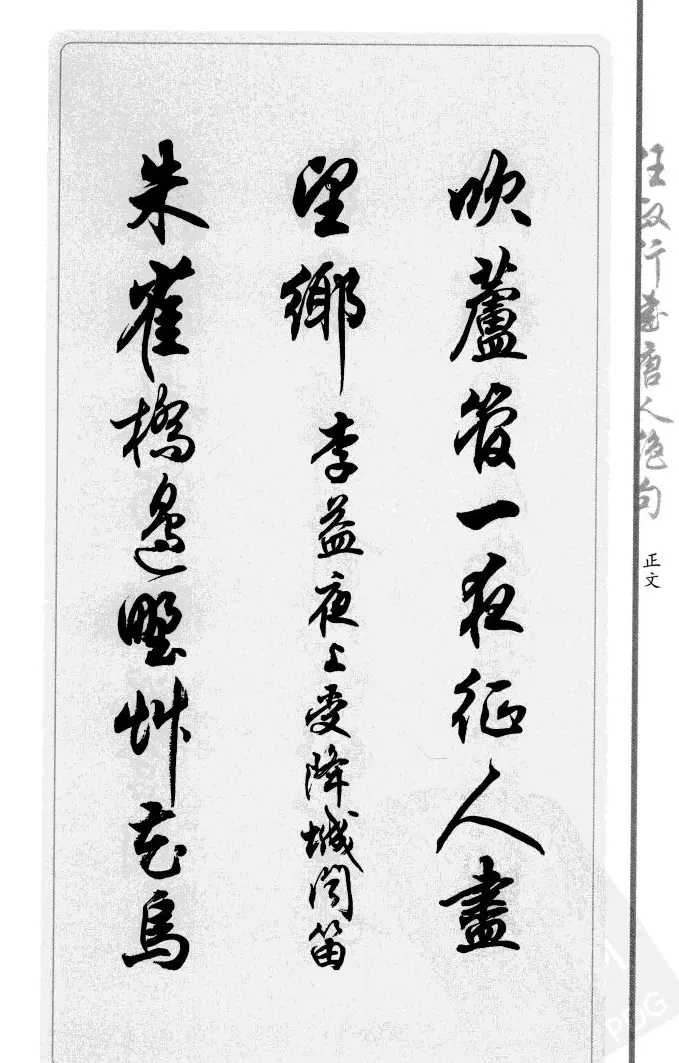 任政行書唐人絕句
正文
吹蘆管一夜征人盡
望鄉 李益夜上受降城聞笛
朱雀橋邊野艸花烏
PDG